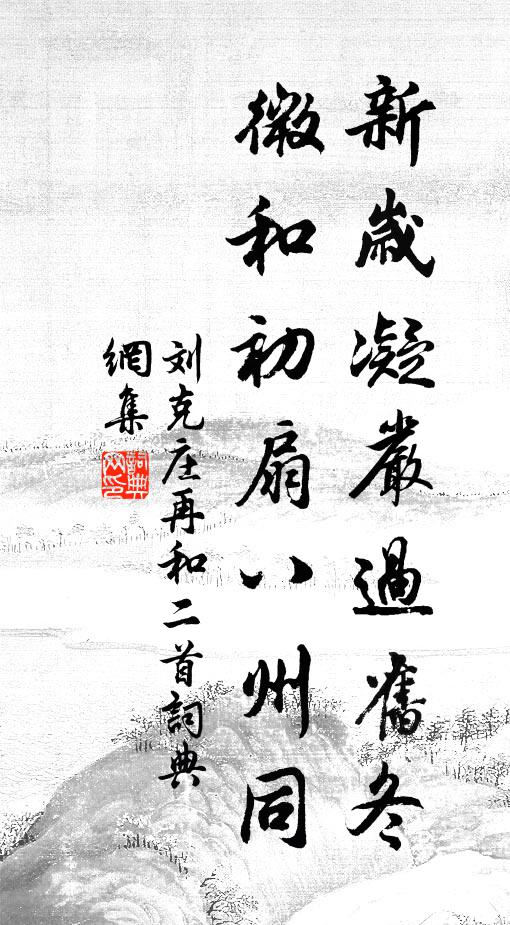 新歲凝嚴過舊冬
微和初扇八州同
刘克庄再和二首詞典
網集
詞典
网印